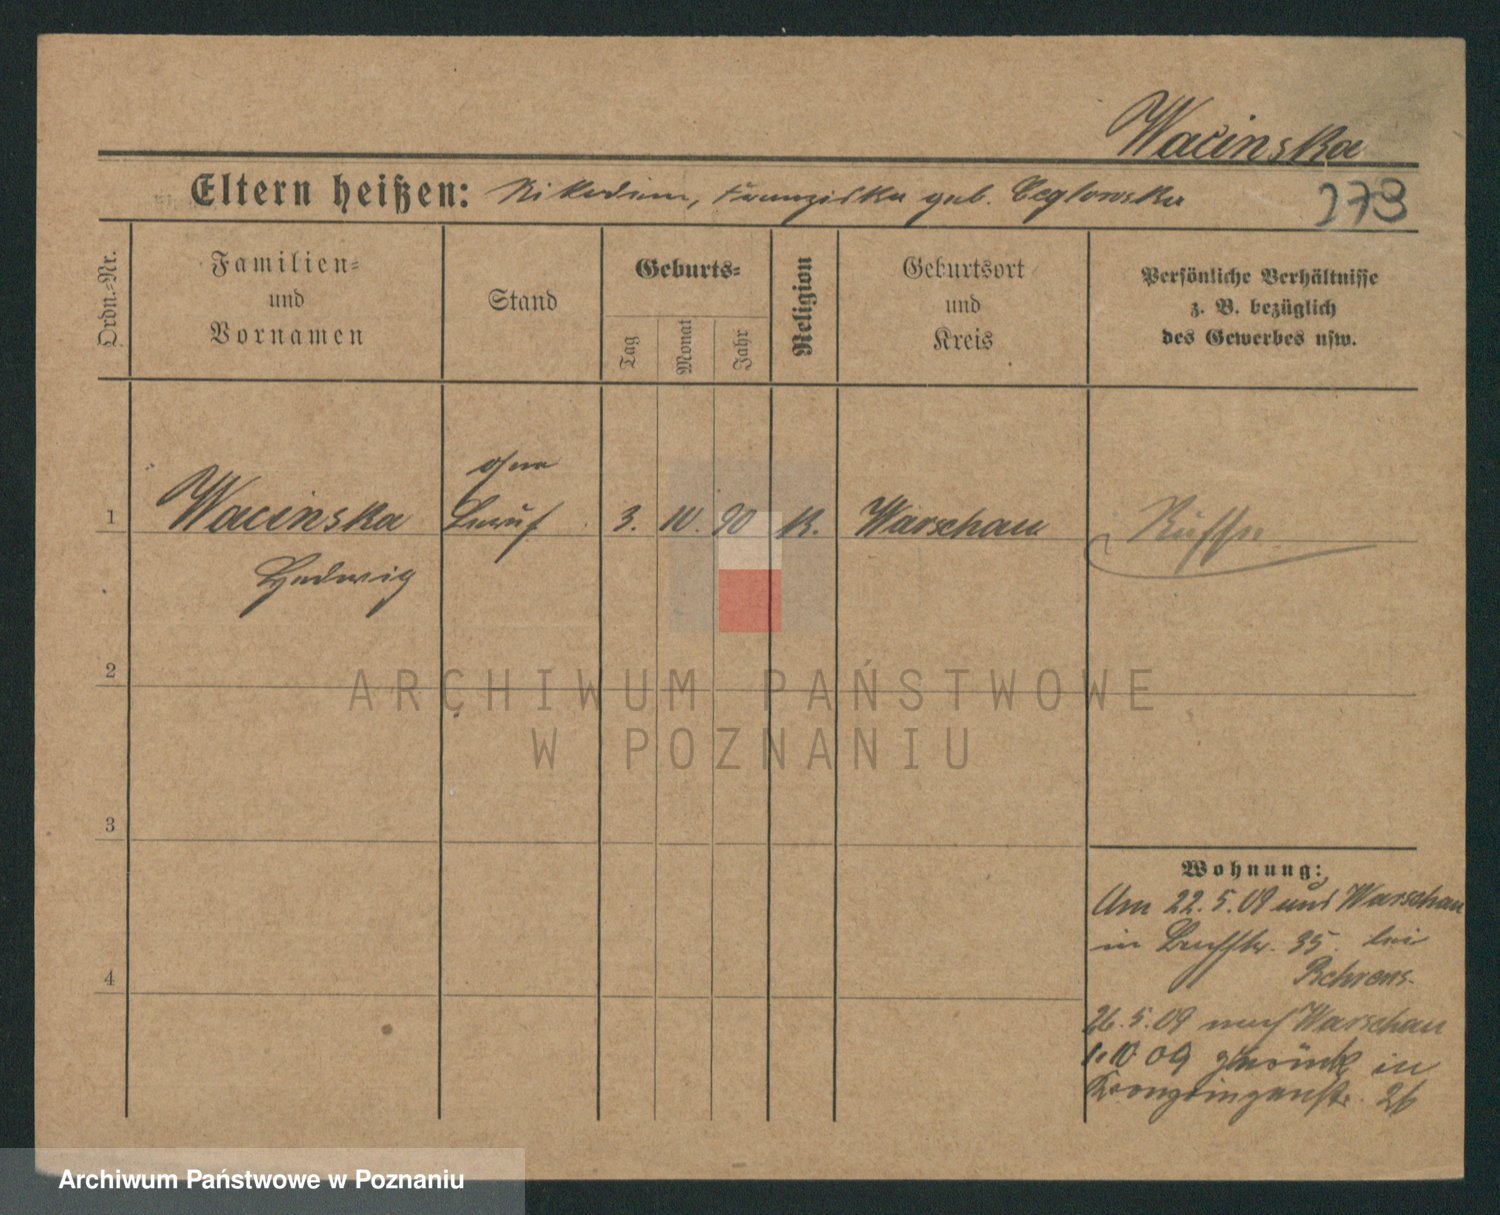 Wacinska
Eltern heißen: Nikodem, Franziska geb. Ceglowska
273
Ordn.-Nr.
Familien-
und
Vornamen
Stand
Geburts-
Tag
Monat
Jahr
Religion
Geburtsort
und
Kreis
Persönliche Verhältnisse
z. B. bezüglich
des Gewerbes usw.
ohne
1 Wacinska Beruf 3. 10. 90 K. Warschau Russin
Hedwig
2
ARCHIWUM PAŃSTWOWE
W POZNANIU
3
Wohnung:
Am 22.5.09 aus Warschau
in 35. bei
Behrens.
4
26.5.09 nach Warschau
1.10 09 zurück in
Kronprinzenstr. 26
Archiwum Państwowe w Poznaniu